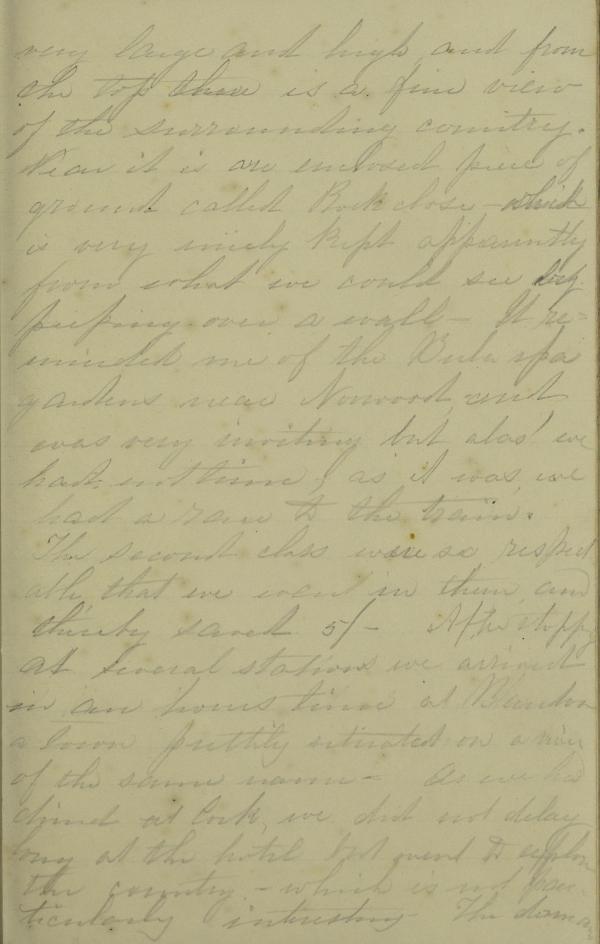 very large and high and from
the top there is a fine view
of the surrounding country.
Near it is an enclosed piece of
ground called Rock close - which
is very nicely kept apparently
from what we could see by
peeping over a wall - It re=
minded me of the Beula spa
gardens near Norwood and
was very inviting but alas! we
had not time & as it was, we
had a race to the train.
The second class were so respect
able, that we went in them and
thereby saved 5/- After stoppg
at several stations we arrived
in an hours time at Bandon
a town prettily situated on a river
of the same name - As we had
dined at Cork, we did not delay
long at the hotel but went to explore
the country - which is not par-
ticularly interesting The